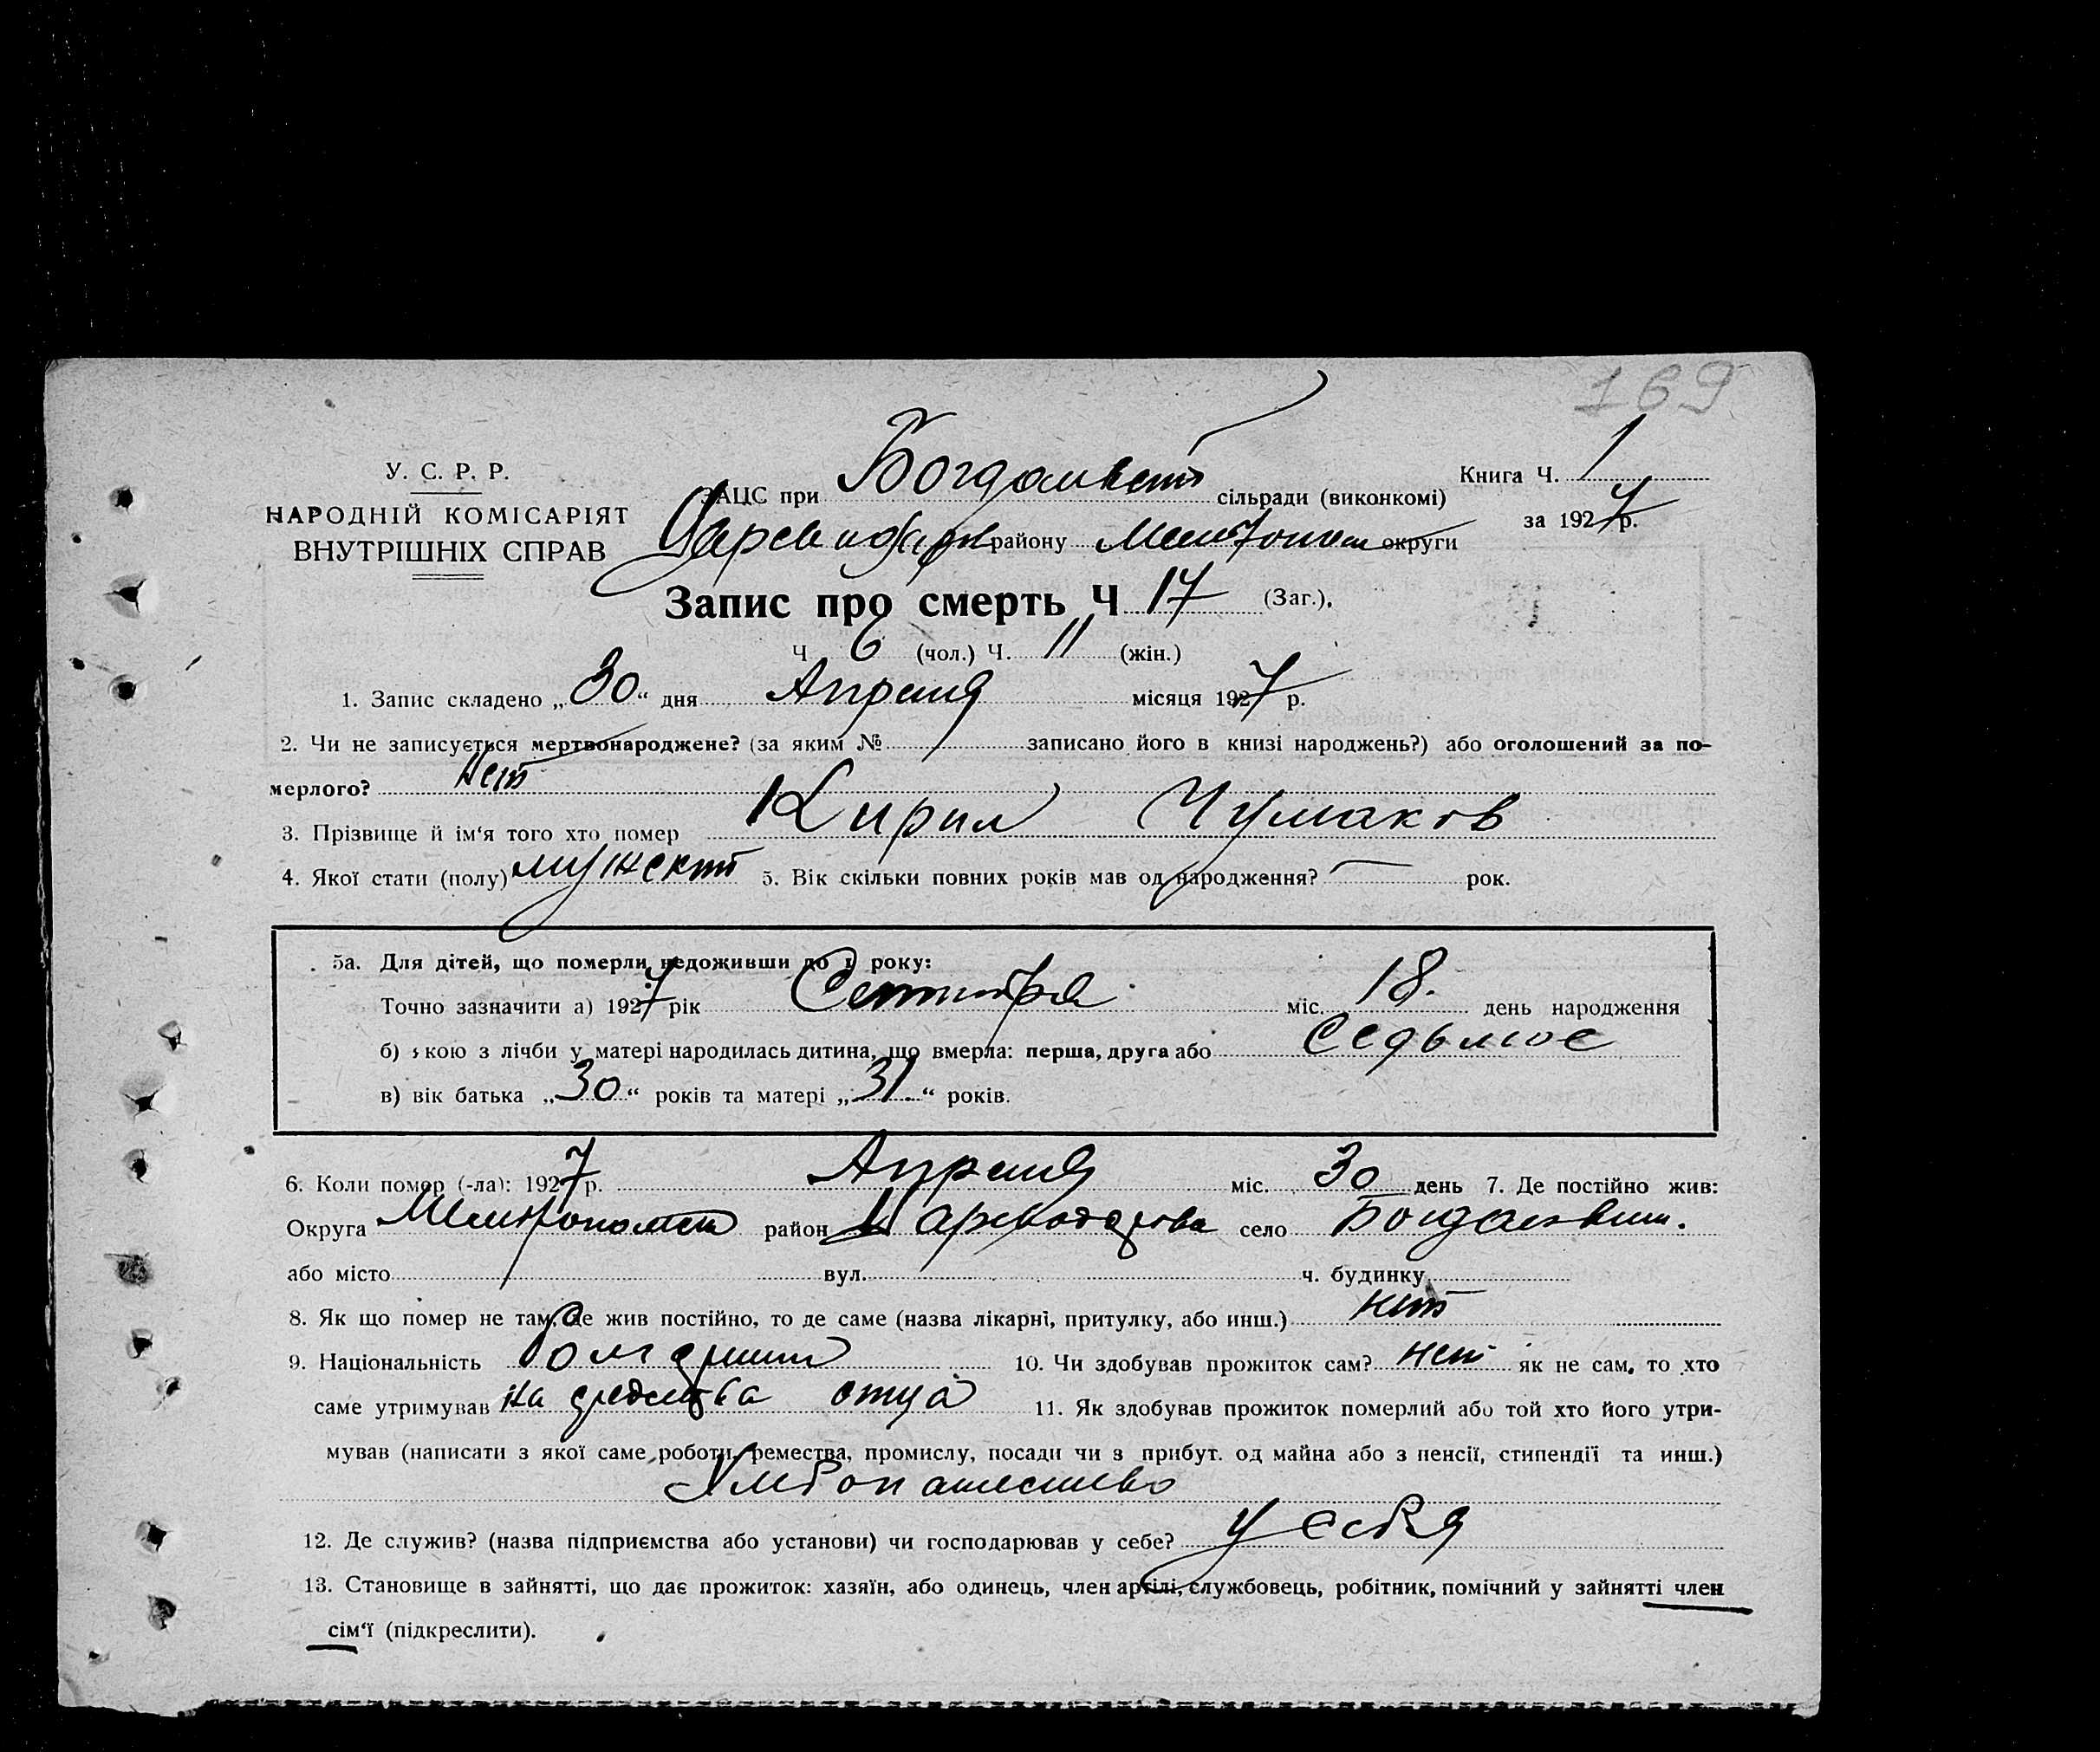 169
У. С. Р. Р.
НАРОДНІЙ КОМІСАРІЯТ
ВНУТРІШНІХ СПРАВ
ЗАЦС при сільради (виконкомі)
району округи
Книга Ч. 1
за 1927 р.
Запис про смерть Ч 17 (Заг.).
Ч 6 (чол.) Ч. 11 (жін.)
1. Запис складено „30“ дня Апреля місяця 1927 р.
2. Чи не записується мертвонароджене? (за яким № записано його в книзі народжень?) або оголошений за по-
мерлого? Нет
3. Прізвище й ім‘я того хто помер Кирил Чумаков
4. Якої стати (полу) мужской 5. Вік скільки повних років мав од народження? — рок.
5а. Для дітей, що померли недоживши до 1 року:
Точно зазначити а) 1927 рік міс. 18. день народження
б) якою з лічби у матері народилась дитина, що вмерла: перша, друга або Седьмое
в) вік батька „30“ років та матері „31.“ років.
6. Коли помер (-ла): 1927 р. Апреля міс. 30 день 7. Де постійно жив:
Округа район село
або місто вул. ч. будинку
8. Як що помер не там, де жив постійно, то де саме (назва лікарні, притулку, або инш.) нет
9. Національність 10. Чи здобував прожиток сам? нет як не сам, то хто
саме утримував на средства отца 11. Як здобував прожиток померлий або той хто його утри-
мував (написати з якої саме роботи, ремества, промислу, посади чи з прибут. од майна або з пенсії, стипендії та инш.)
Хлебопашество
12. Де служив? (назва підприємства або установи) чи господарював у себе? у себя
13. Становище в зайнятті, що дає прожиток: хазяїн, або одинець, член артілі, службовець, робітник, помічний у зайнятті член
сім‘ї (підкреслити).